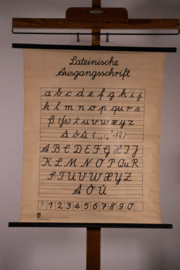 Lateinische
Ausgangsschrift
a b c d e f g h i j
k l m n o p qu r s
ß t u v w x y z
ä ö ü
A B C D E F G H I J
K L M N O P Qu R
S T U V W X Y Z
Ä Ö Ü
1 2 3 4 5 6 7 8 9 0